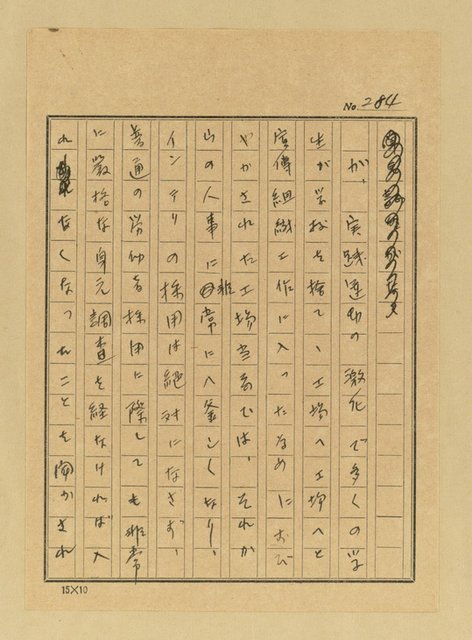 No. 284
が、実践運動の激化で多くの学
生が学校を捨て、工場へ工場へと
宣傳組織工作に入ったためにおび
やかされた工場当局では、それか
らの人事に非常に八釜しくなり、
インテリの採用は絶対になさず、
普通の労働者採用に際しても非常
に厳格な身元調査を経なければ入
れなくなったことを聞かされ
15×10